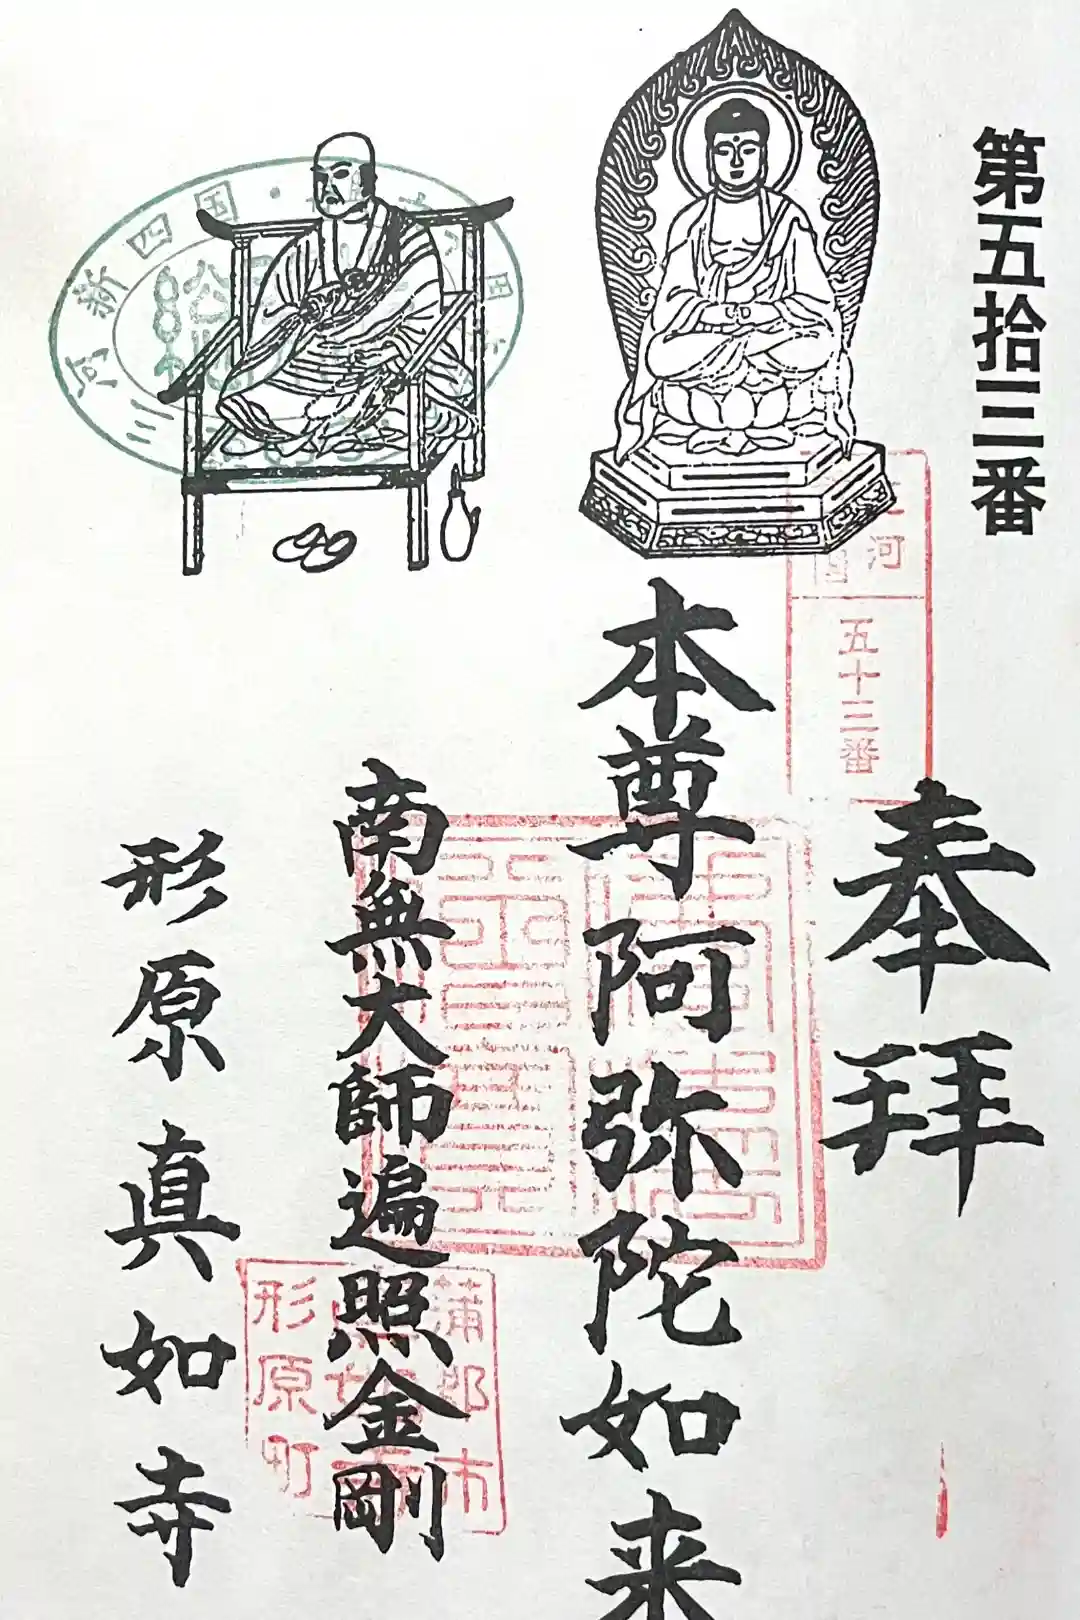 第五拾三番
奉拝
本尊阿弥陀如来
南無大師遍照金剛
形原真如寺
河
五十三番
蒲郡市
形原町
三河新四国